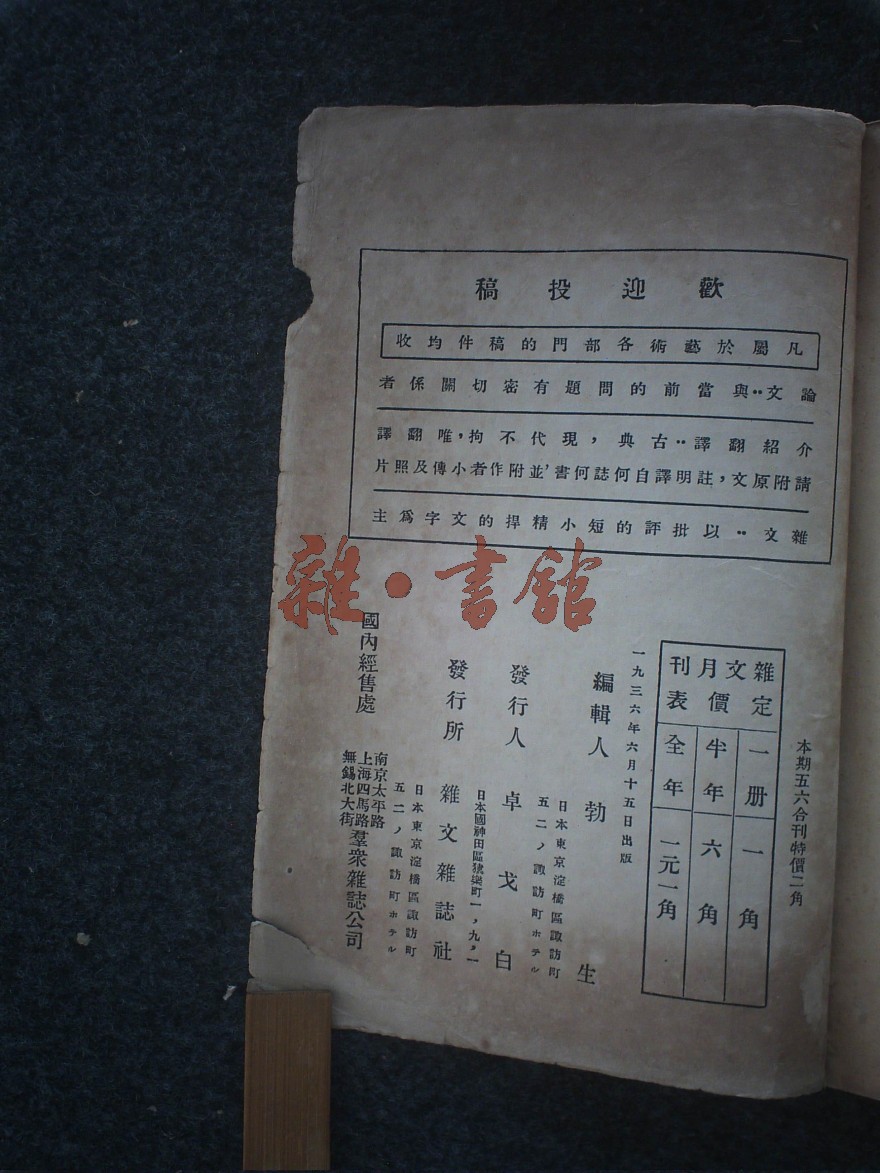 歡迎投稿
凡屬於藝術各部門的稿件均收
論文：與當前的問題有密切關係者
介紹翻譯：古典，現代不拘，唯翻譯
請附原文，註明譯自何誌何書，並附作者小傳及照片
雜文：以批評的短小精捍的文字爲主
雜・書館
本期五六合刊特價二角
雜文月刊
定價表
一册 一角
半年 六角
全年 一元一角
一九三六年六月十五日出版
編輯人 勃生
日本東京淀橋區諏訪町
五二ノ諏訪町ホテル
發行人 卓戈白
日本國神田區猿樂町一，九，一
發行所 雜文雜誌社
日本東京淀橋區諏訪町
五二ノ諏訪町ホテル
國內經售處
南京太平路
上海四馬路
無錫北大街
羣衆雜誌公司